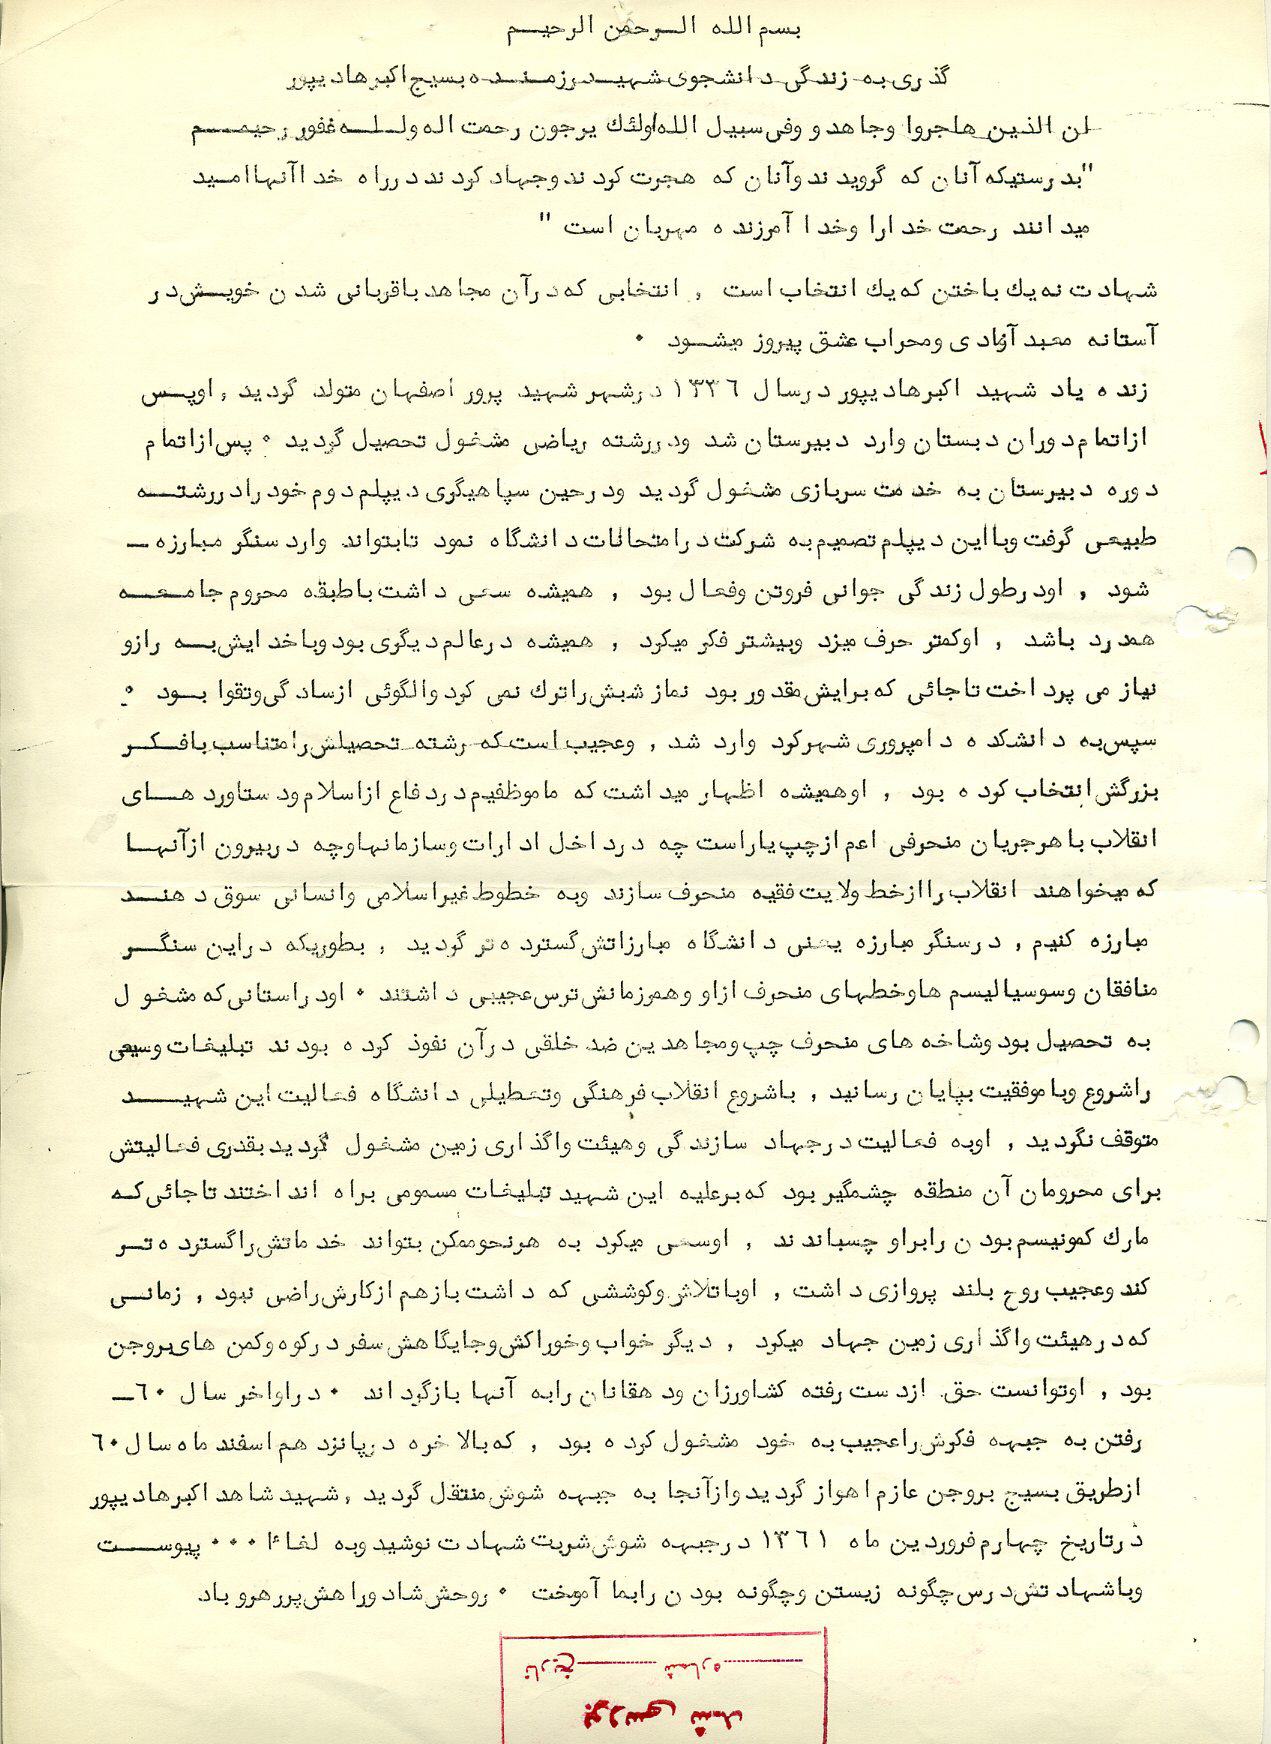 بسم الله الرحمن الرحیم
گذری به زندگی دانشجوی شهید رزمنده بسیج اکبر هادیپور
ان الذین هاجروا وجاهدو وفی سبیل الله اولئك یرجون رحمت اله ولله غفور رحیم
"بدرستیکه آنان که گرویدند وآنان که هجرت کردند وجهاد کردند در راه خدا آنها امید
میدانند رحمت خدارا وخدا آمرزنده مهربان است "
شهادت نه یك باختن که یك انتخاب است , انتخابی که درآن مجاهد باقربانی شدن خویش در
آستانه معبد آزادی ومحراب عشق پیروز میشود ۰
زنده یاد شهید اکبر هادیپور درسال ۱۳۳٦ درشهر شهید پرور اصفهان متولد گردید , او پس
از اتمام دوران دبستان وارد دبیرستان شد ودررشته ریاضی مشغول تحصیل گردید ۰ پس از اتمام
دوره دبیرستان به خدمت سربازی مشغول گردید ودرحین سپاهیگری دیپلم دوم خود را دررشته
طبیعی گرفت وبا این دیپلم تصمیم به شرکت در امتحانات دانشگاه نمود تابتواند وارد سنگر مبارزه ـ
شود , اودرطول زندگی جوانی فروتن وفعال بود , همیشه سعی داشت باطبقه محروم جامعه
همدرد باشد , اوکمتر حرف میزد وبیشتر فکر میکرد , همیشه درعالم دیگری بود وباخدایش به رازو
نیاز می پرداخت تاجائی که برایش مقدور بود نماز شبش راترك نمی کرد والگوئی ازسادگی وتقوا بود ۰
سپس به دانشکده دامپروری شهرکرد وارد شد , وعجیب است که رشته تحصیلش را متناسب بافکر
بزرگش انتخاب کرده بود , اوهمیشه اظهار میداشت که ماموظفیم دردفاع ازاسلام ودستاورد های
انقلاب با هرجریان منحرفی اعم ازچپ یاراست چه درداخل ادارات وسازمانها وچه دربیرون ازآنها
که میخواهند انقلاب را ازخط ولایت فقیه منحرف سازند وبه خطوط غیراسلامی وانسانی سوق دهند
مبارزه کنیم , درسنگر مبارزه یعنی دانشگاه مبارزاتش گسترده تر گردید , بطوریکه دراین سنگر
منافقان وسوسیالیسم ها وخطهای منحرف ازاو وهمرزمانش ترس عجیبی داشتند ۰ اودراستانی که مشغول
به تحصیل بود وشاخه های منحرف چپ ومجاهدین ضد خلقی درآن نفوذ کرده بودند تبلیغات وسیعی
راشروع وبا موفقیت بپایان رسانید , باشروع انقلاب فرهنگی وتعطیلی دانشگاه فعالیت این شهید
متوقف نگردید , اوبه فعالیت درجهاد سازندگی وهیئت واگذاری زمین مشغول گردید بقدری فعالیتش
برای محرومان آن منطقه چشمگیر بود که برعلیه این شهید تبلیغات مسمومی براه انداختند تاجائی که
مارك کمونیسم بودن رابراو چسباندند , اوسعی میکرد به هرنحوممکن بتواند خدماتش راگسترده تر
کند وعجیب روح بلند پروازی داشت , اوباتلاش وکوششی که داشت بازهم ازکارش راضی نبود , زمانی
که درهیئت واگذاری زمین جهاد میکرد , دیگر خواب وخوراکش وجایگاهش سفر درکوه وکمن های بروجن
بود , اوتوانست حق ازدست رفته کشاورزان ودهقانان رابه آنها بازگرداند ۰ دراواخر سال ٦۰ ـ
رفتن به جبهه فکرش راعجیب به خود مشغول کرده بود , که بالاخره درپانزدهم اسفند ماه سال ٦۰
ازطریق بسیج بروجن عازم اهواز گردید وازآنجا به جبهه شوش منتقل گردید , شهید شاهد اکبر هادیپور
درتاریخ چهارم فروردین ماه ۱۳٦۱ درجبهه شوش شربت شهادت نوشید وبه لقاءا ۰۰۰ پیوست
وباشهادتش درس چگونه زیستن وچگونه بودن رابما آموخت ۰ روحش شاد وراهش پررهرو باد
شماره تاریخ
بررسی شد